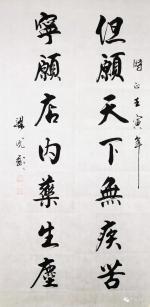 時正壬寅年
但願天下無疾苦
寧願店内藥生塵